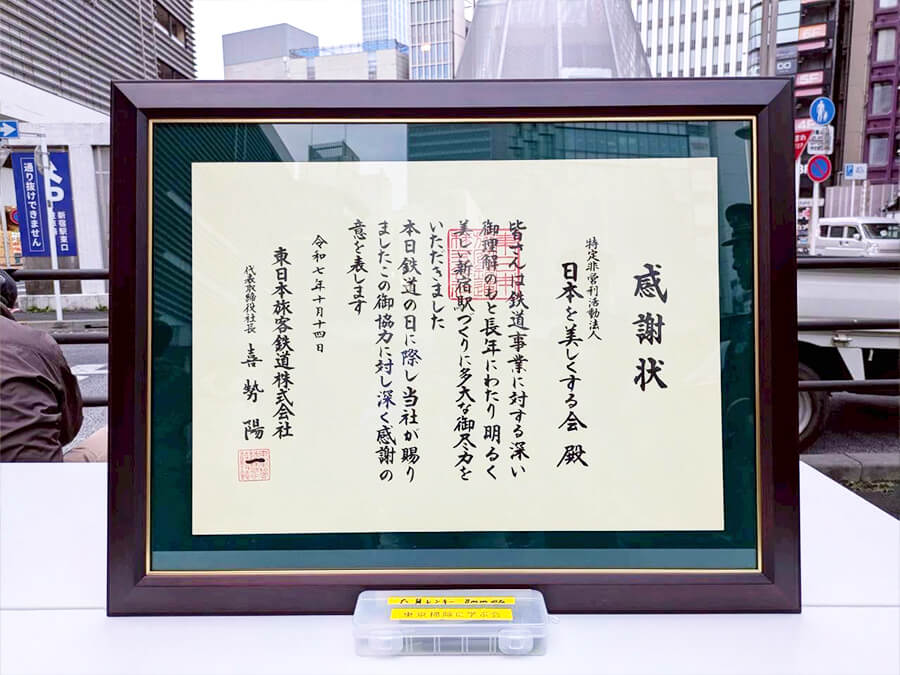 感謝状
特定非営利活動法人
日本を美しくする会 殿
皆さんは鉄道事業に対する深い
御理解のもと長年にわたり明るく
美しい新宿駅づくりに多大な御尽力を
いただきました
本日鉄道の日に際し当社が賜り
ましたこの御協力に対し深く感謝の
意を表します
令和七年十月十四日
東日本旅客鉄道株式会社
代表取締役社長 喜㔟陽一
東京掃除に学ぶ会
新宿駅東口
通り抜けできません